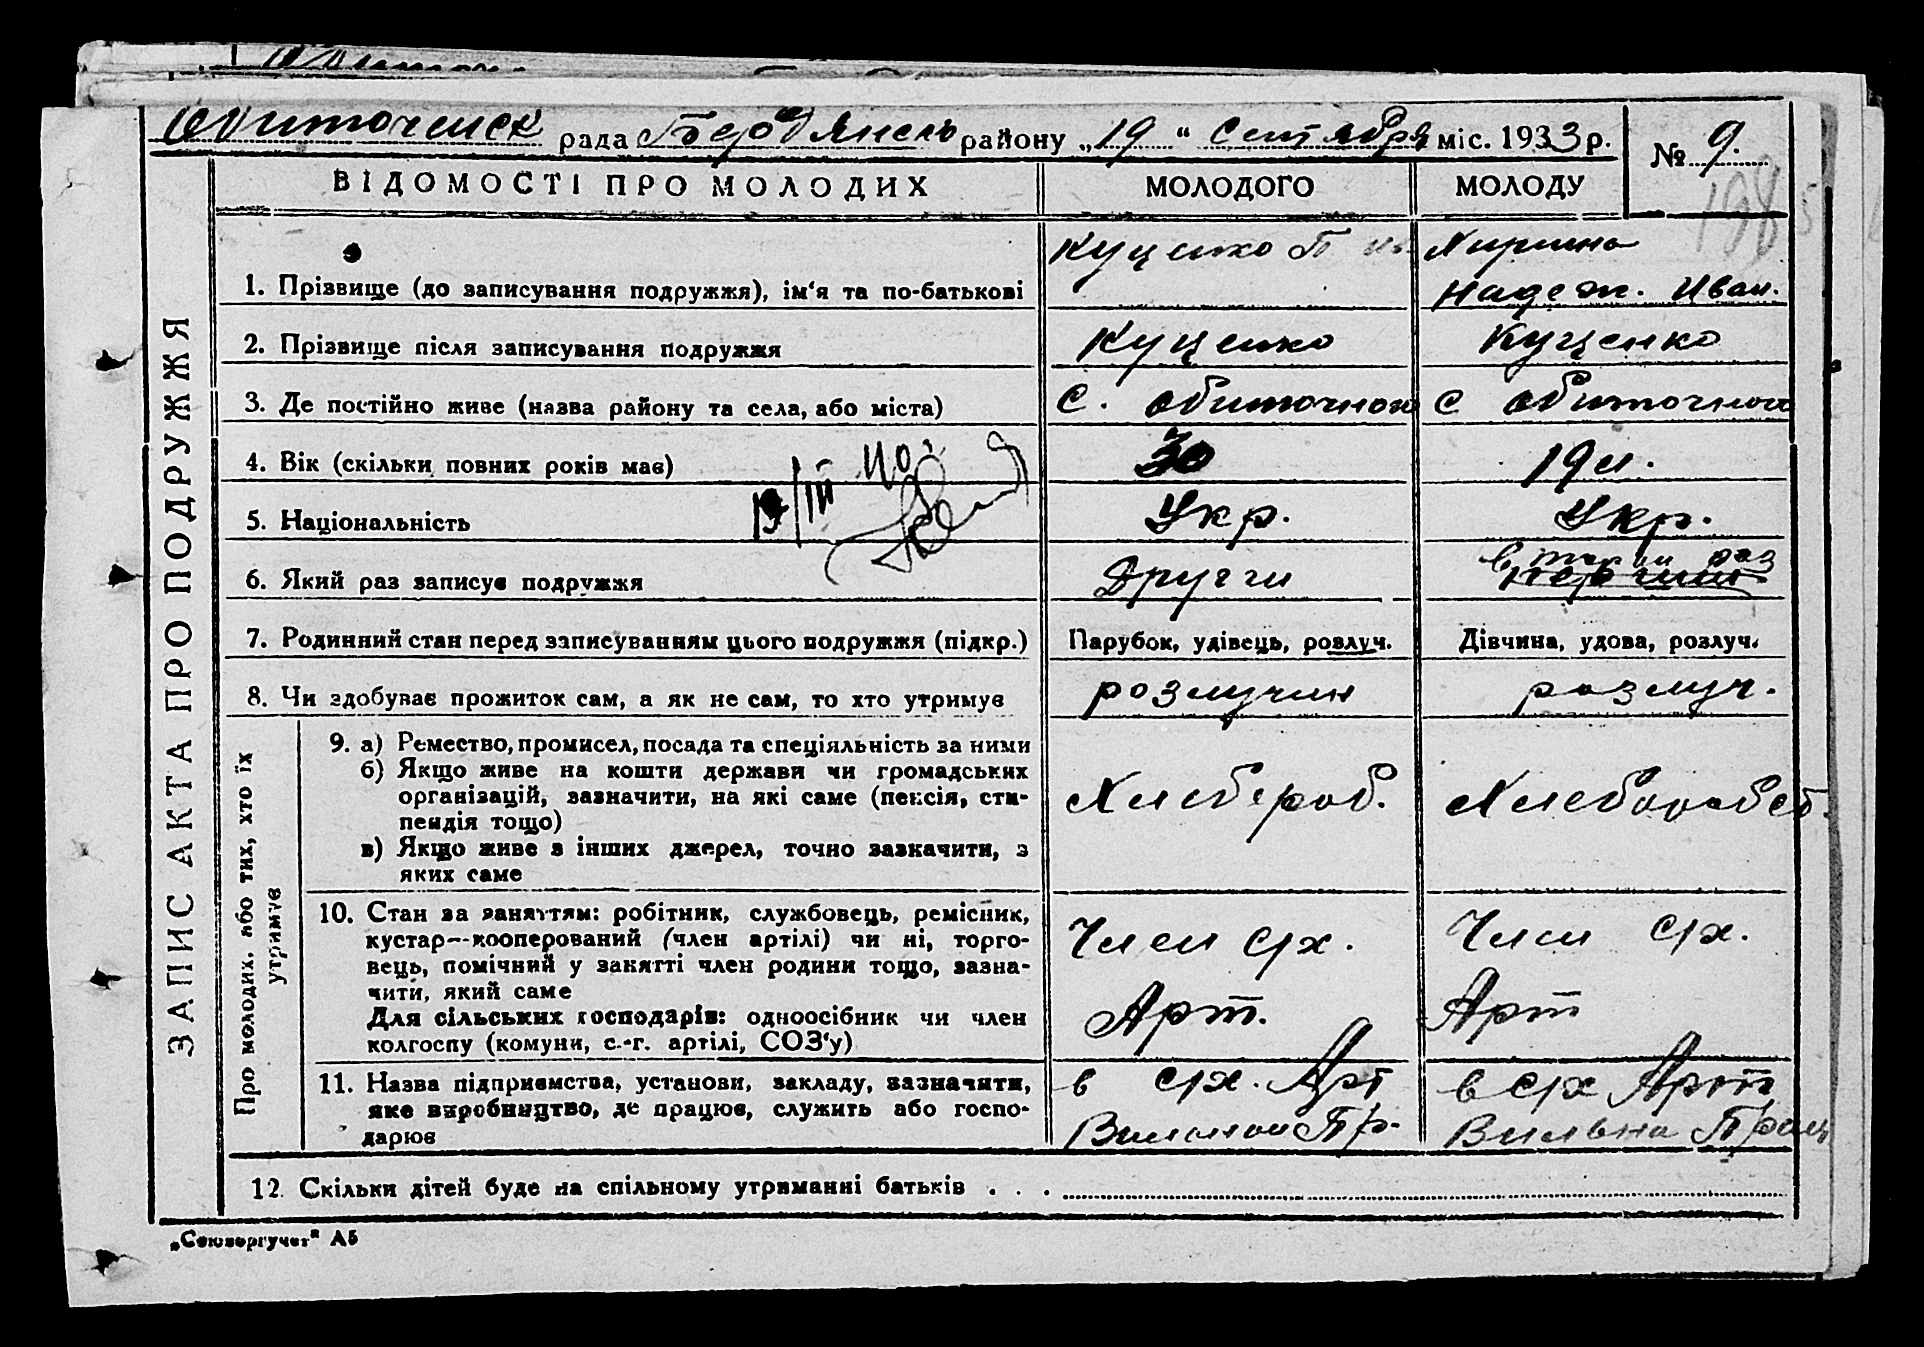 Обиточенск рада Бердянск району „19“ Сентября міс. 1933 р.
№ 9.
198
ВІДОМОСТІ ПРО МОЛОДИХ
МОЛОДОГО
МОЛОДУ
ЗАПИС АКТА ПРО ПОДРУЖЖЯ
1. Прізвище (до записування подружжя), ім'я та по-батькові
Куценко П Ив
Надеж. Иван.
2. Прізвище після записування подружжя
Куценко
Куценко
3. Де постійно живе (назва району та села, або міста)
С. Обиточного
С Обиточного
4. Вік (скільки повних років має)
30
19 л.
19/III 40
5. Національність
Укр.
Укр.
6. Який раз записує подружжя
Другги
раз
7. Родинний стан перед записуванням цього подружжя (підкр.)
Парубок, удівець, розлуч.
Дівчина, удова, розлуч.
8. Чи здобуває прожиток сам, а як не сам, то хто утримує
розлучин
розлуч.
Про молодих, або тих, хто їх утримує
9. а) Ремество, промисел, посада та спеціяльність за ними
б) Якщо живе на кошти держави чи громадських
організацій, зазначити, на які саме (пенсія, сти-
пендія тощо)
в) Якщо живе з інших джерел, точно зазначити, з
яких саме
Хлебороб.
Хлебороб
10. Стан за заняттям: робітник, службовець, ремісник,
кустар—кооперований (член артілі) чи ні, торго-
вець, помічний у занятті член родини тощо, зазна-
чити, який саме
Для сільських господарів: одноосібник чи член
колгоспу (комуни, с.-г. артілі, СОЗ'у)
Член с/х.
Арт.
Член с/х.
Арт
11. Назва підприємства, установи, закладу, зазначити,
яке виробництво, де працює, служить або госпо-
дарює
в с/х. Арт
Вильнои Пр.
в с/х Арт
Вильна Прац
12. Скільки дітей буде на спільному утриманні батьків . . .
„Союзоргучет" А5